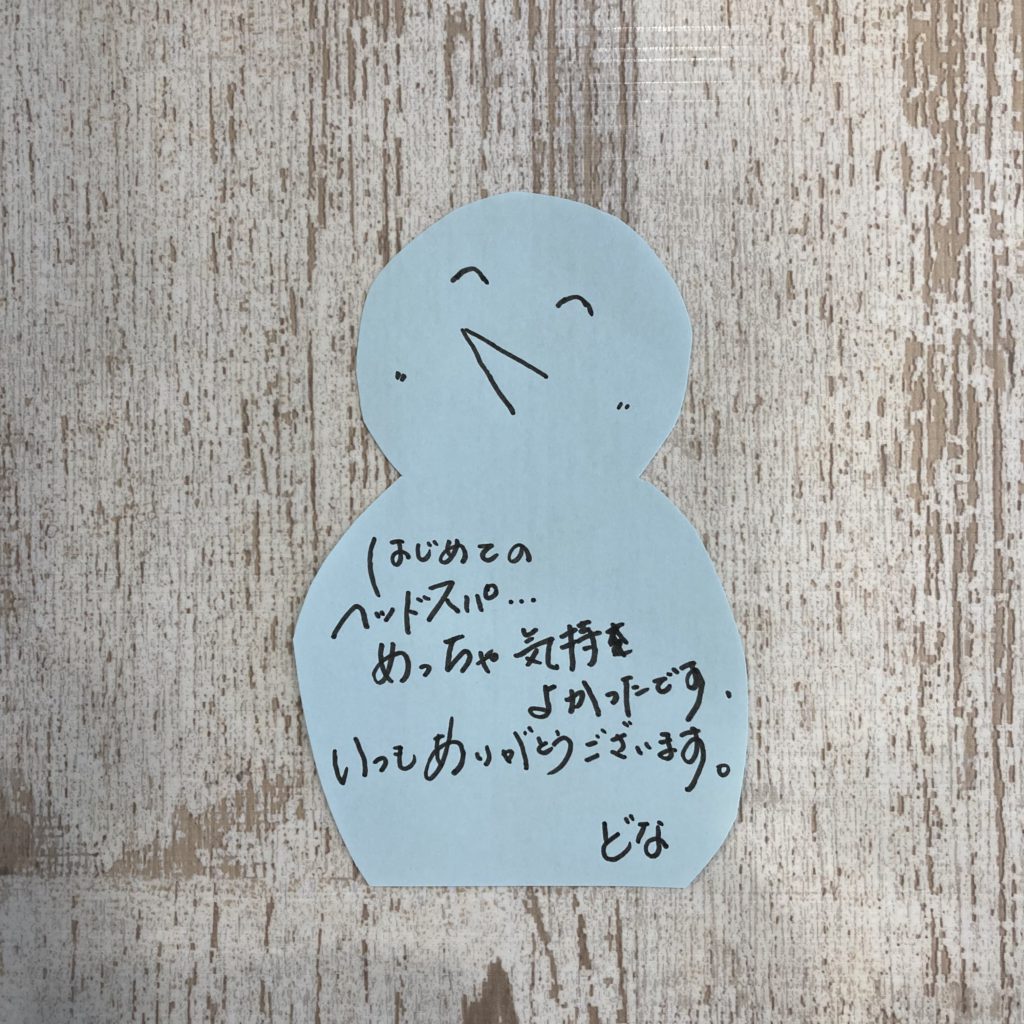 はじめての
ヘッドスパ…
めっちゃ気持ち
よかったです.
いつもありがとうございます。
どな